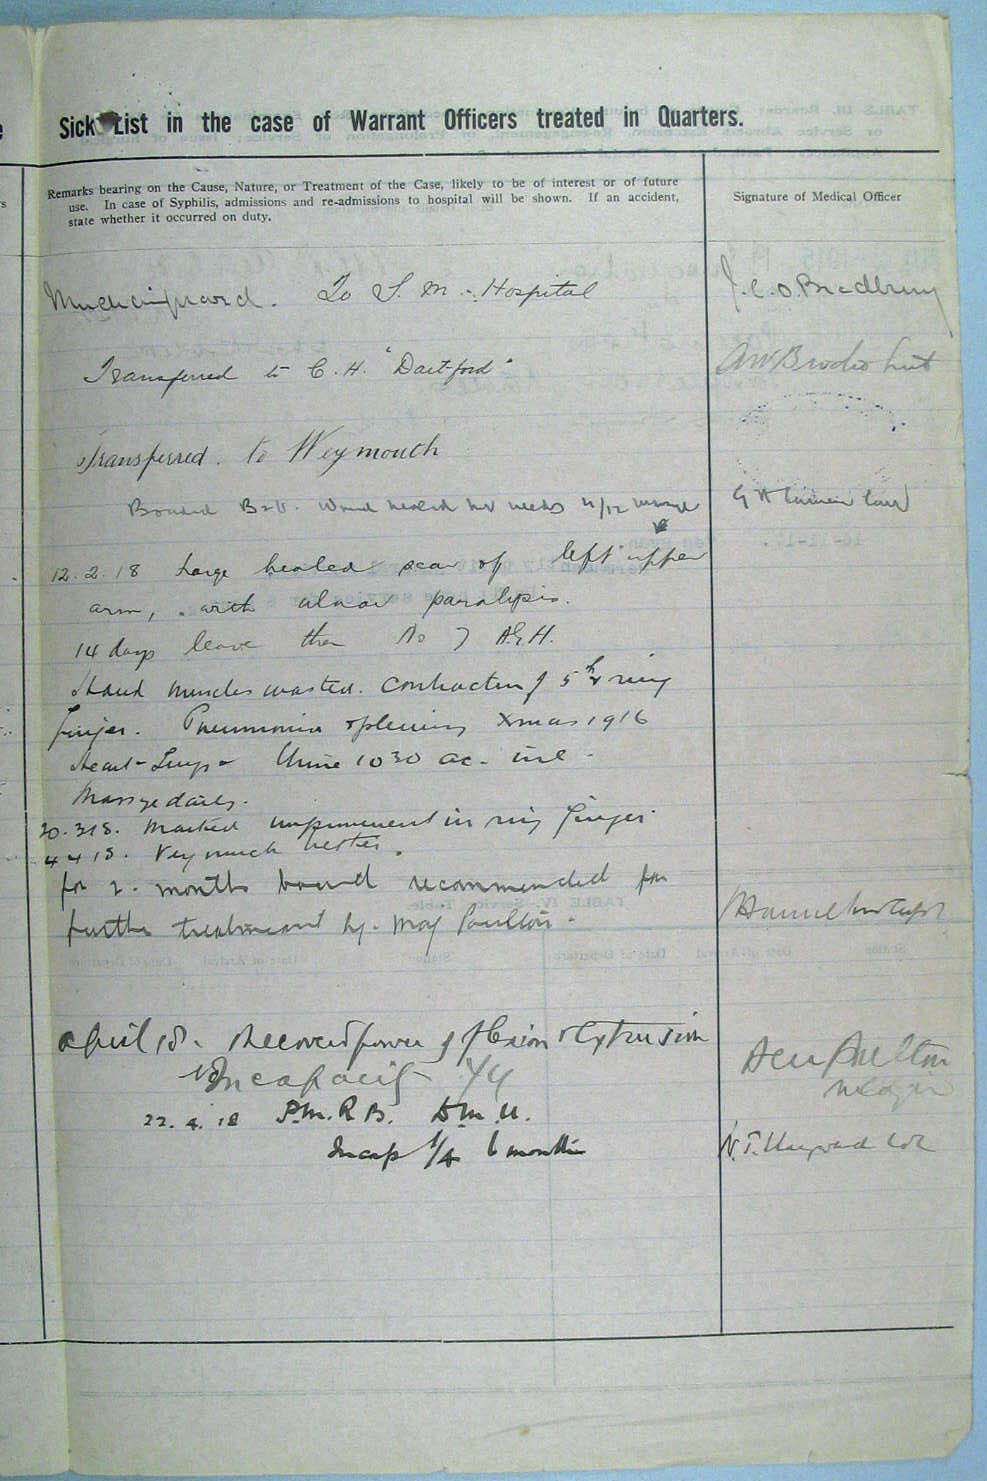 Sick List in the case of Warrant Officers treated in Quarters.
Remarks bearing on the Cause, Nature, or Treatment of the Case, likely to be of interest or of future
use. In case of Syphilis, admissions and re-admissions to hospital will be shown. If an accident,
state whether it occurred on duty.
Signature of Medical Officer
Much improved. To S. M. Hospital
J. C. O. Bradbury
Transferred to C. H. "Dartford"
Transferred. to Weymouth
Boarded Wound healed but needs 4/12 massage
12.2.18 Large healed scar of left upper
arm, with ulnar paralysis.
14 days leave then A.G.H.
Hand muscles wasted. Contraction of 5th & ring
finger. Pneumonia & pleurisy Xmas 1916
Heart - Lungs - Urine 1030 ac.
Massage daily.
20.3.18. Marked improvement in ring finger
4 4 18. Very much better.
for 2. months board recommended for
further treatment by. Maj Poulton.
April 18. Recovered power of flexion & extension
Incapacity
22.4.18 P.M.R.B. D.M.U.
Incap 1/4 6 months